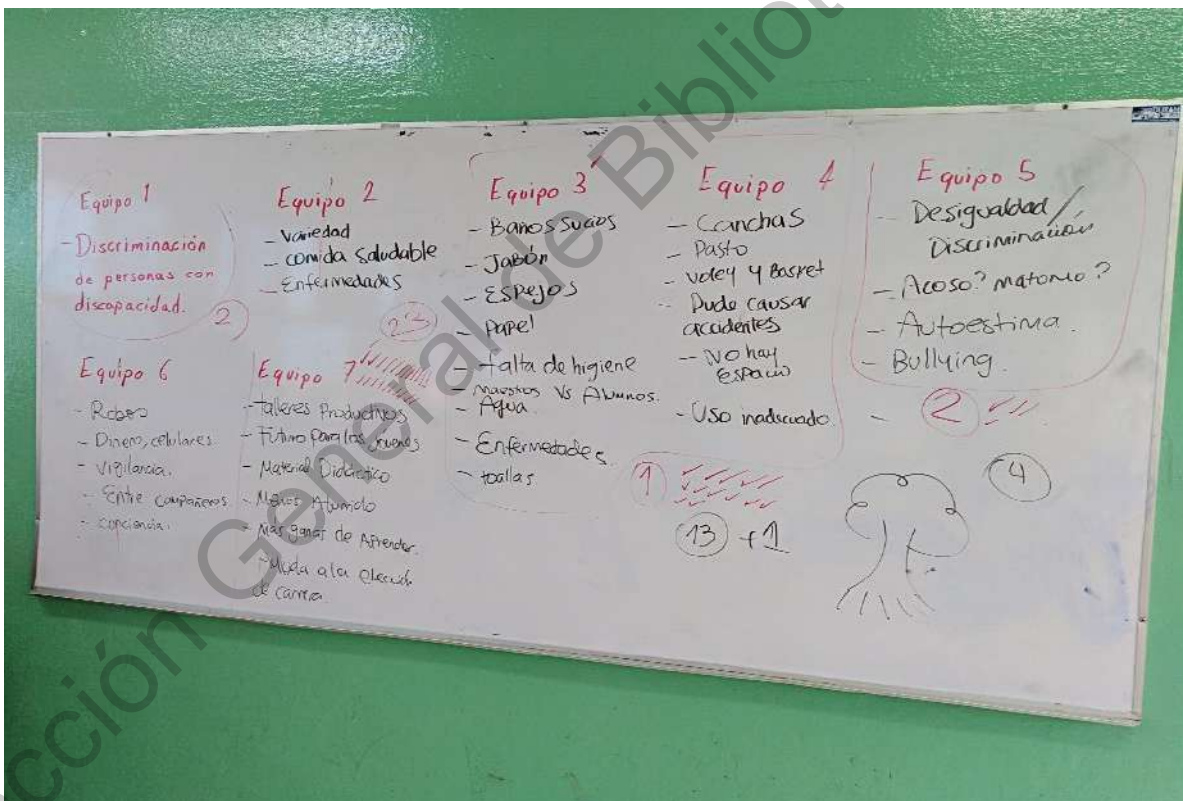 Equipo 1
- Discriminación
de personas con
discapacidad.
2
Equipo 2
- Variedad
- comida saludable
- Enfermedades
Equipo 3
- Baños sucios
- Jabón
- Espejos
- Papel
- falta de higiene
Maestros Vs Alumnos.
- Agua
- Enfermedades
- toallas
Equipo 4
- Canchas
- Pasto
- voley y Basket
- Pude causar
accidentes
- No hay
Espacio
- Uso inadecuado
1
13 + 1
Equipo 5
- Desigualdad /
Discriminación
- Acoso?
- Autoestima.
- Bullying.
- 2
4
Equipo 6
- Robos
- Dinero, celulares
- Vigilancia.
- Entre compañeros
- conciencia.
Equipo 7
- Talleres Productivos
- Futuro para los jovenes
- Material Didactico
- Menos Aburrido
- Mas ganas de Aprender.
a la
de carrera
Dirección General de Bibliot